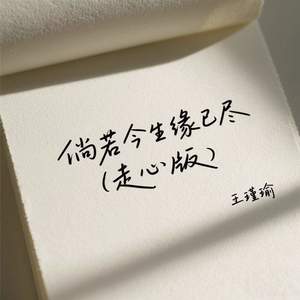 倘若今生缘已尽
(走心版)
王瑾瑜